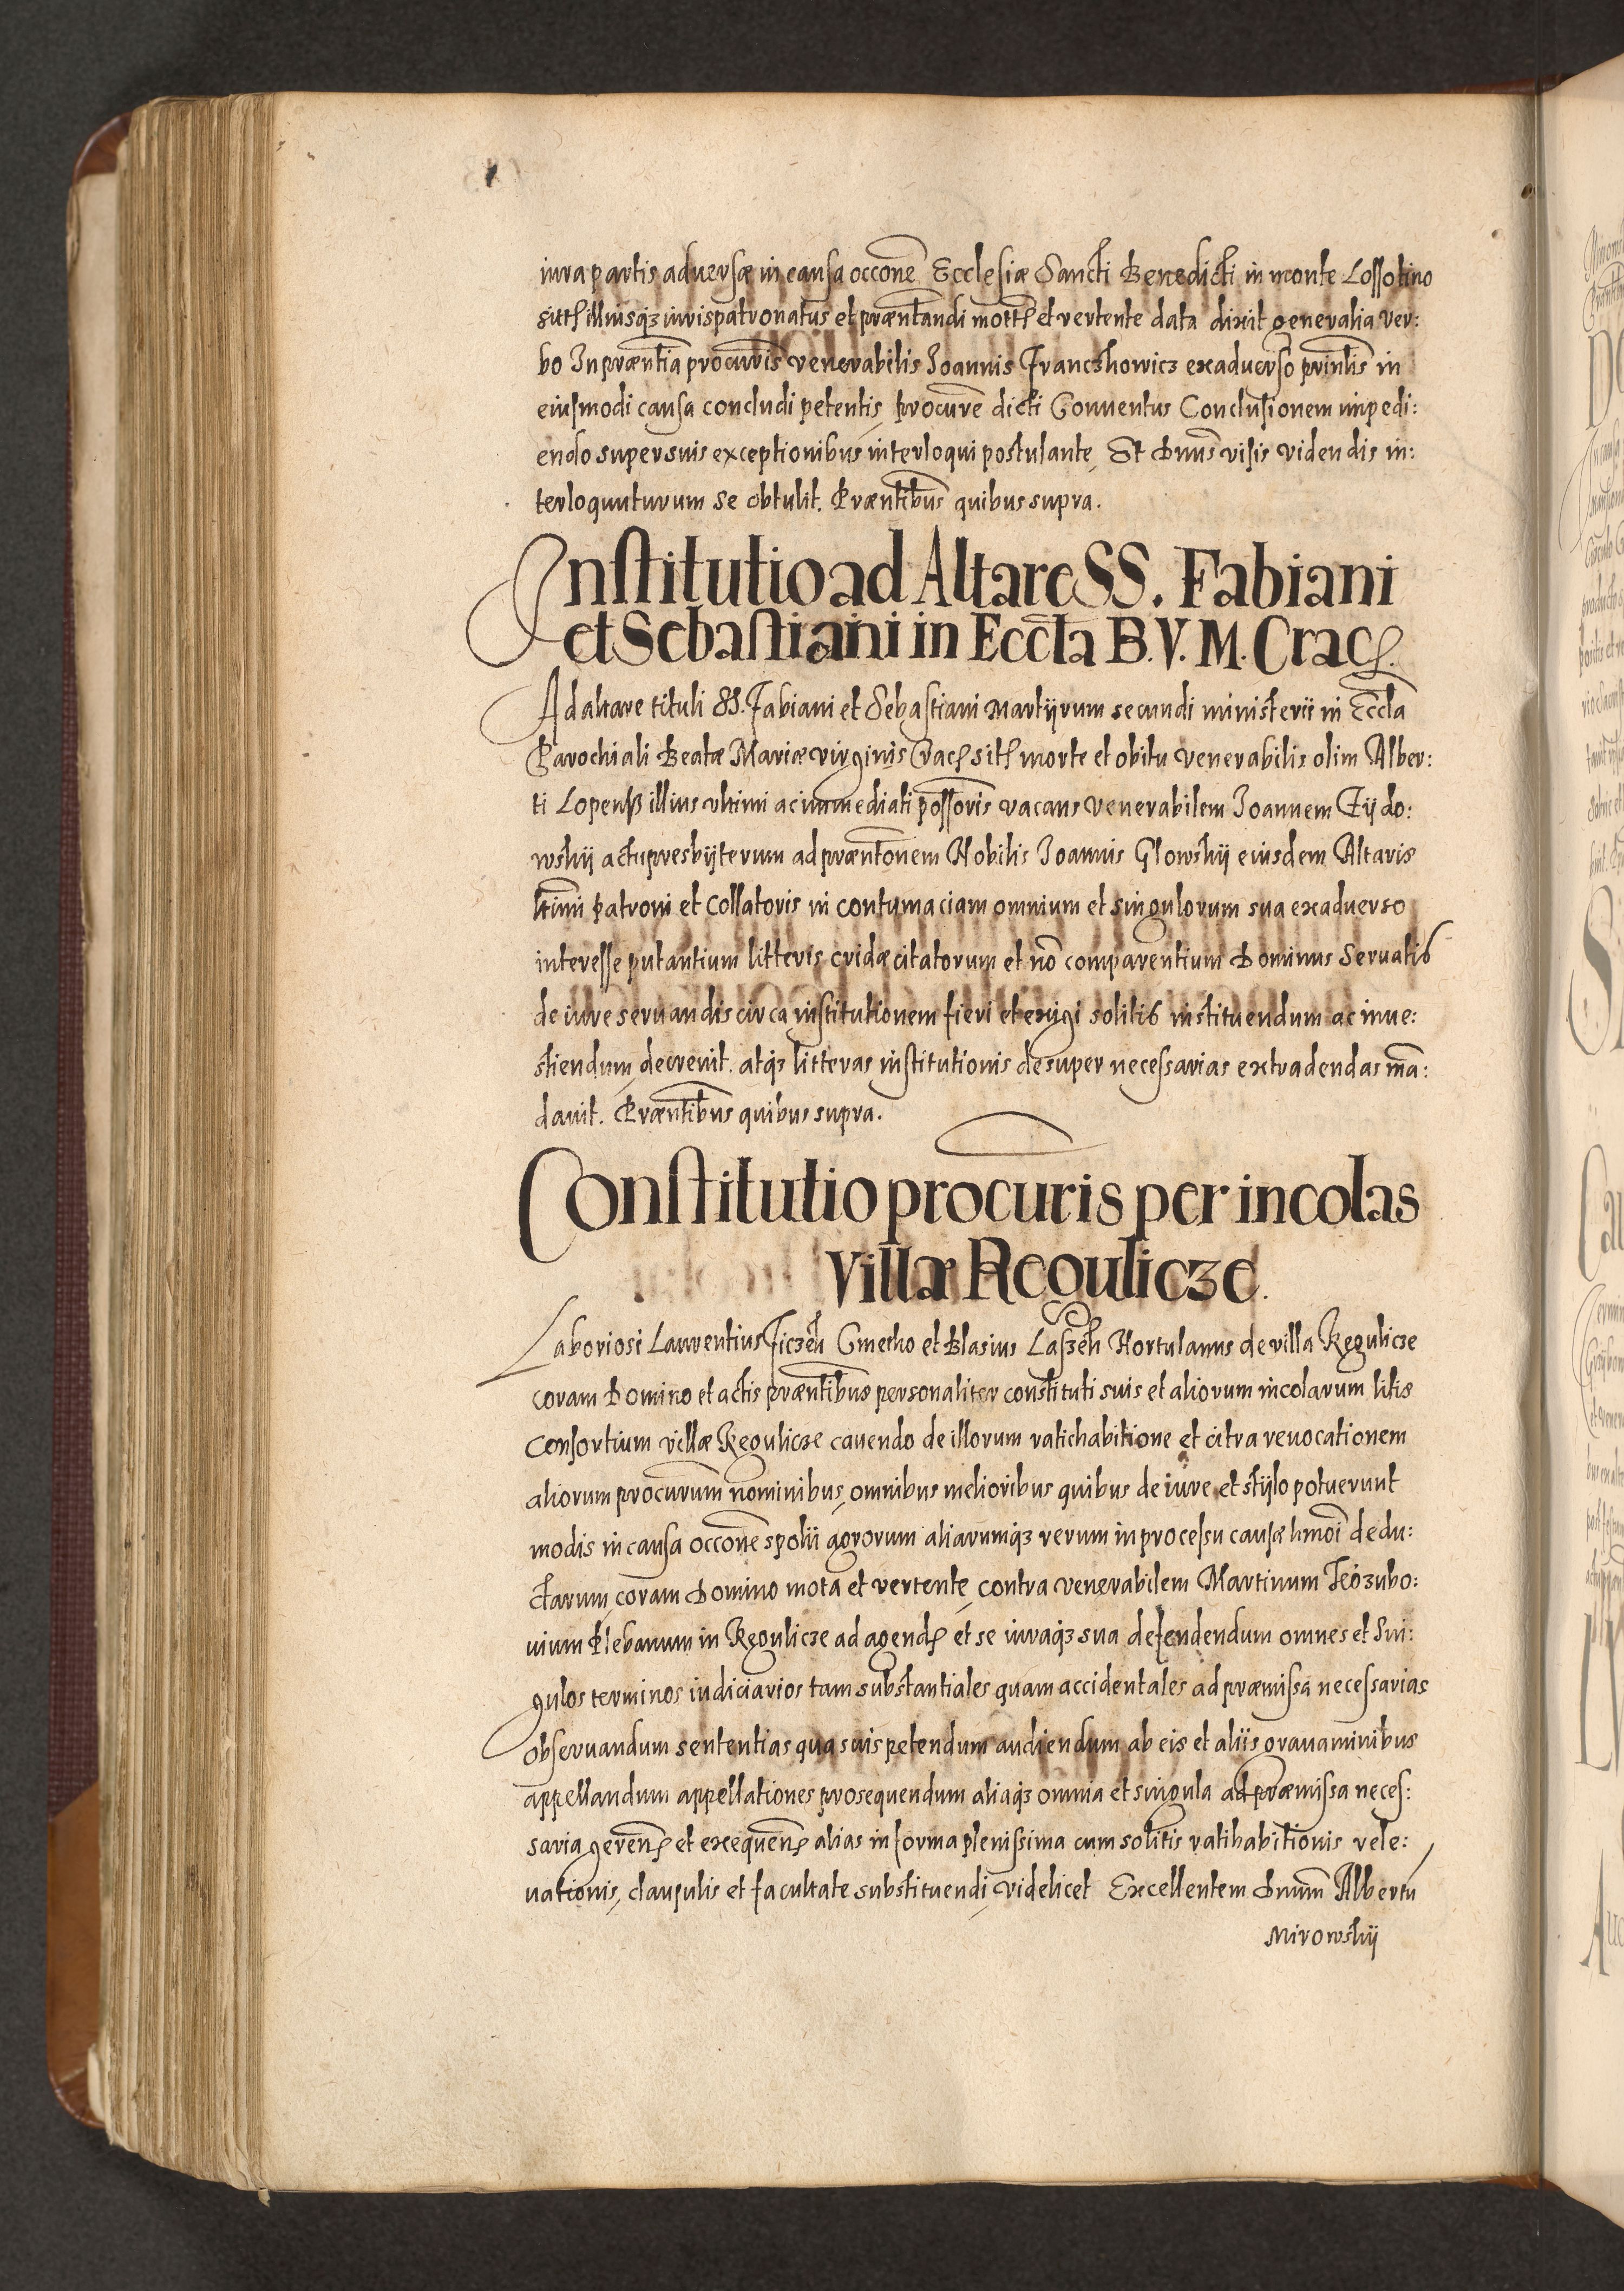 iura partis aduersæ in causa occone Ecclesiæ Sancti Benedicti in monte Lossotino
sitth illiusqз iuris patronatus et præntandi motth et vertente data dixit generalia ver:
bo In præntia procuris venerabilis Joannis Franczkowicz exaduerso prinlis in
eiusmodi causa concludi petentis, procure dicti Conuentus Conclusionem impedi:
endo super suis exceptionibus interloqui postulante, Et Dnus visis videndis in:
terloquuturum se obtulit. Præntibus quibus supra.
Institutio ad Altare SS. Fabiani
et Sebastiani in Eccla B. V. M. Crac.
Ad altare tituli SS. Fabiani et Sebastiani Martijrum secundi ministerii in Eccla
Parochiali Beatæ Mariæ virginis Crac sith morte et obitu venerabilis olim Alber:
ti Lopensß illius vltimi ac immediati possoris vacans venerabilem Joannem Cijdo:
wskij actu presbijterum ad præntonem Nobilis Joannis Glowskij eiusdem Altaris
ltimi patroni et Collatoris in contumaciam omnium et singulorum sua exaduerso
interesse putantium litteris cridæ citatorum et no comparentium Dominus Seruatis
de iure seruandis circa institutionem fieri et exigi solitis instituendum ac inue:
stiendum decreuit. atqз litteras institutionis desuper necessarias extradendas ma:
dauit. Præntibus quibus supra.
Constitutio procuris per incolas
Villæ Regulicze.
Laboriosi Laurentius Ficzek Cmetho et Blasius Laszek Hortulanus de villa Regulicze
coram Domino et actis præntibus personaliter constituti suis et aliorum incolarum litis
Consortium villæ Regulicze cauendo de illorum ratihabitione et citra reuocationem
aliorum procurum nominibus, omnibus melioribus quibus de iure et stijlo potuerunt
modis in causa occone spolii agrorum aliarumqз rerum in processu causæ hmoi dedu:
ctarum, coram Domino mota et vertente, contra venerabilem Martinum Kozubo:
uium Plebanum in Regulicze ad agend et se iuraqз sua defendendum omnes et Sin:
gulos terminos iudiciarios tam substantiales quam accidentales ad præmissa necessarias
obseruandum sententias quasuis petendum audiendum ab eis et aliis grauaminibus
appellandum appellationes prosequendum aliaqз omnia et singula ad præmissa neces:
saria geren et exequen alias in forma plenissima cum solitis ratihabitionis rele:
uationis, clausulis et facultate substituendi, videlicet Excellentem Dnum Albertu
Mirowskij